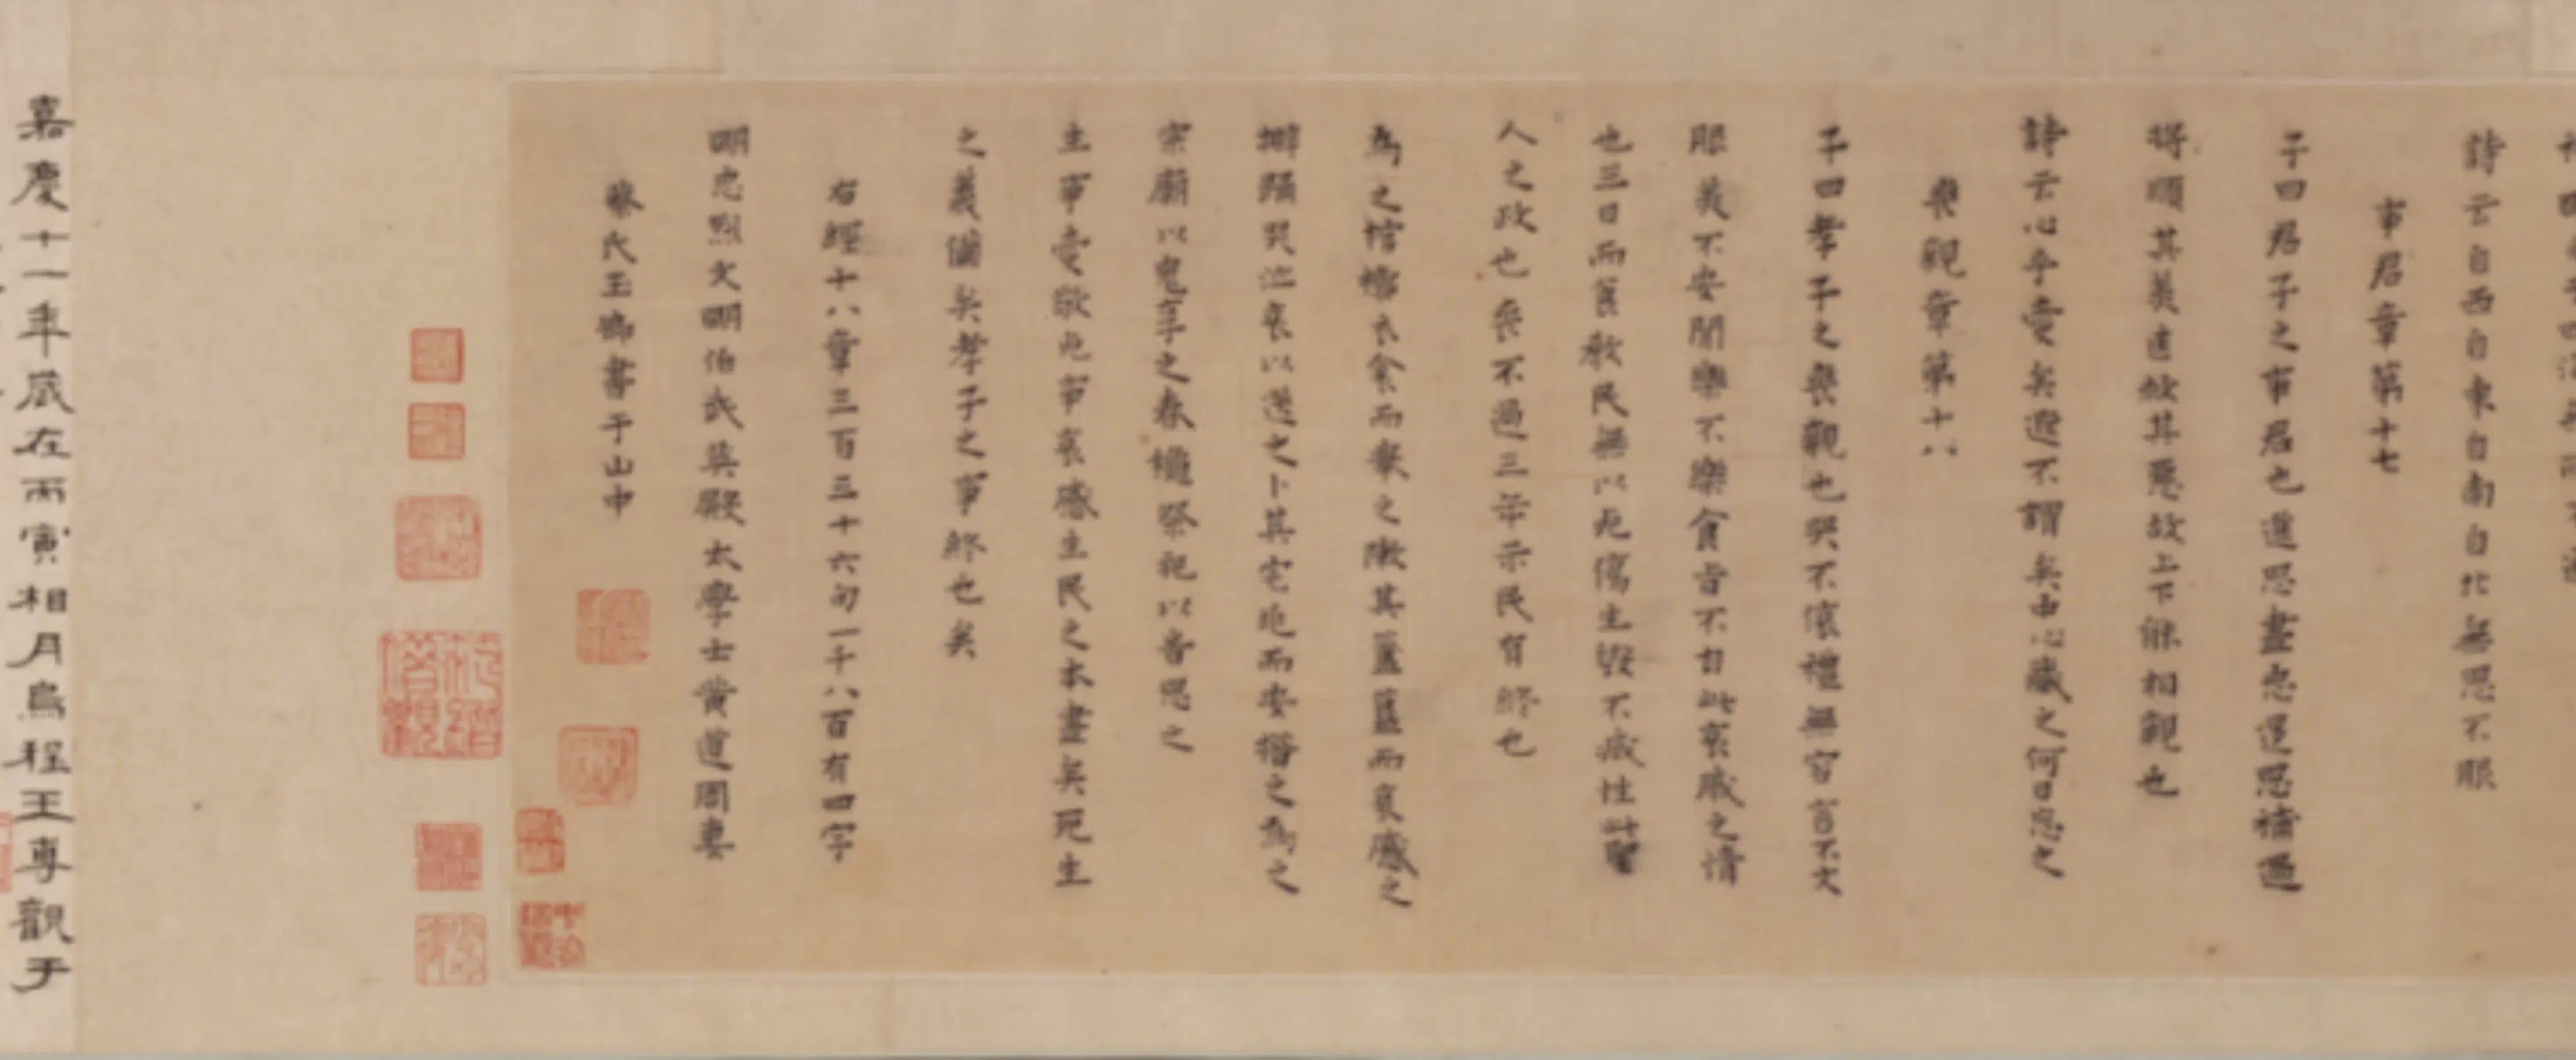 詩云自西自東自南自北無思不服
事君章第十七
子曰君子之事君也進思盡忠退思補過
將順其美匡救其惡故上下能相親也
詩云心乎愛矣遐不謂矣中心藏之何日忘之
喪親章第十八
子曰孝子之喪親也哭不偯禮無容言不文
服美不安聞樂不樂食旨不甘此哀戚之情
也三日而食教民無以死傷生毀不滅性此聖
人之政也喪不過三年示民有終也
為之棺槨衣衾而舉之陳其簠簋而哀慼之
擗踊哭泣哀以送之卜其宅兆而安措之為之
宗廟以鬼享之春秋祭祀以時思之
生事愛敬死事哀慼生民之本盡矣死生
之義備矣孝子之事終也矣
右經十八章三百三十六句一千八百有四字
明忠烈文明伯武英殿大學士黃道周妻
蔡氏玉卿書于山中
嘉慶十一年歲在丙寅相月烏程王專觀于